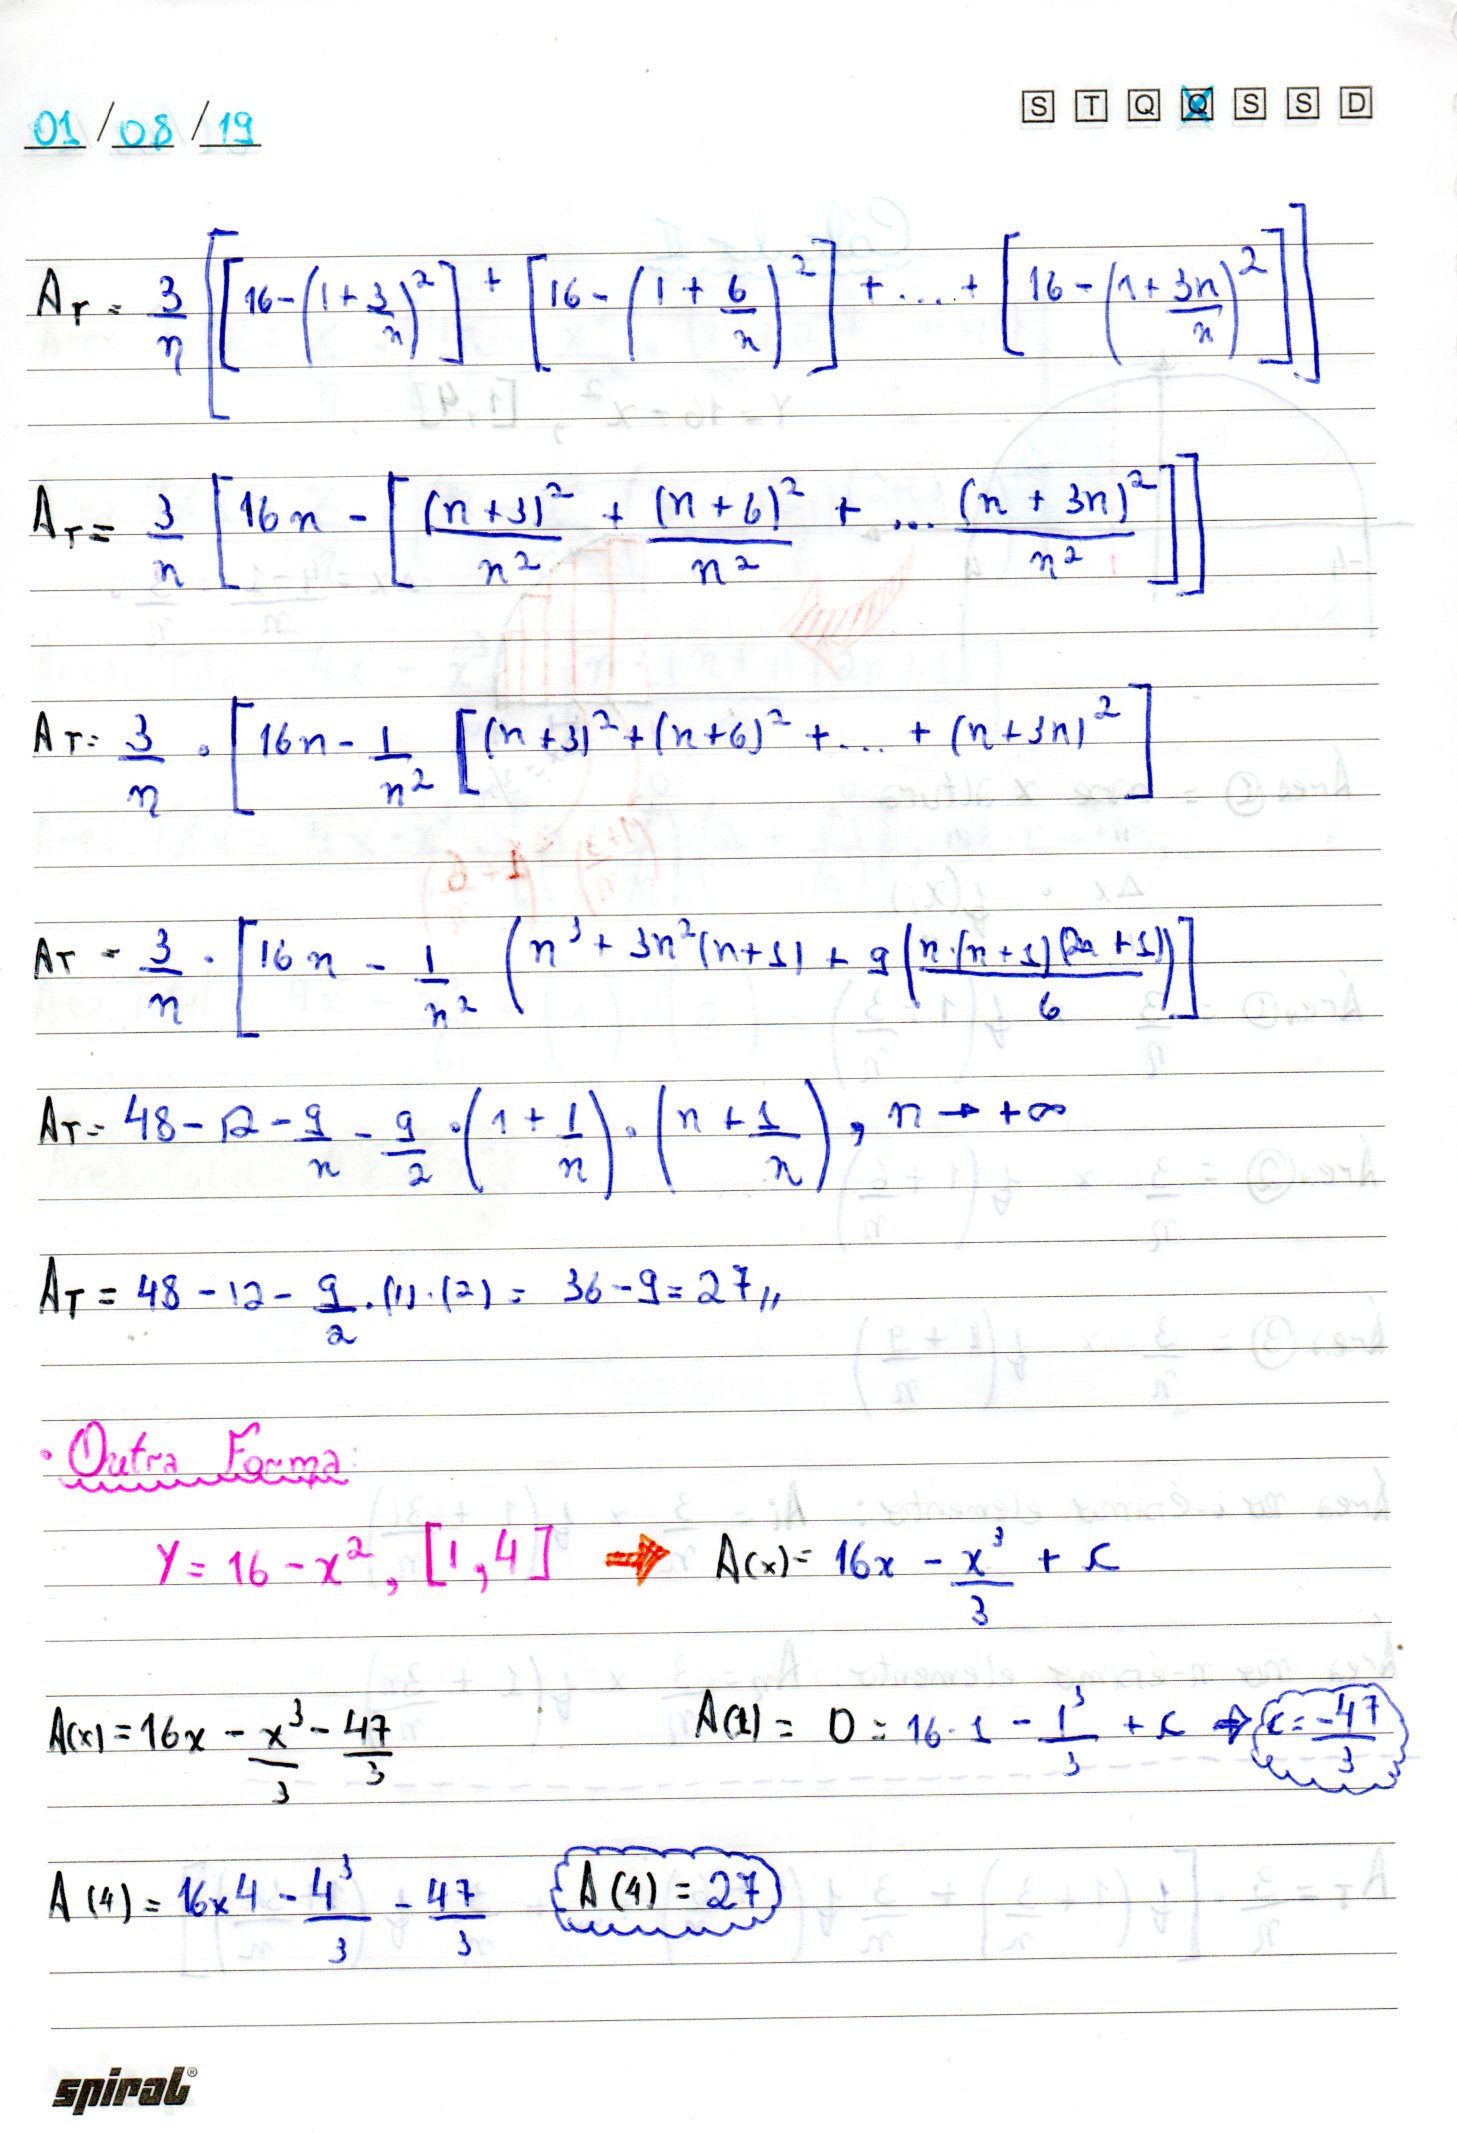 01/08/19 S T Q Q S S D
A_T = 3/n [[16-(1+3/n)^2] + [16-(1+6/n)^2] + ... + [16-(1+3n/n)^2]]
A_T = 3/n [16n - [(n+3)^2/n^2 + (n+6)^2/n^2 + ... (n+3n)^2/n^2]]
A_T = 3/n · [16n - 1/n^2 [(n+3)^2+(n+6)^2+...+(n+3n)^2]
A_T = 3/n · [16n - 1/n^2 (n^3+3n^2(n+1)+9(n·(n+1)(2n+1)/6))]
A_T = 48-12-9/n-9/2·(1+1/n)·(n+1/n), n→+∞
A_T = 48-12-9/2·(1)·(2) = 36-9=27,,
· Outra Forma:
Y=16-x^2, [1,4] ⇒ A(x)=16x-x^3/3+c
A(x)=16x-x^3/3-47/3 A(1)=0=16·1-1^3/3+c → c=-47/3
A(4)=16x4-4^3/3-47/3 A(4)=27
spiral®